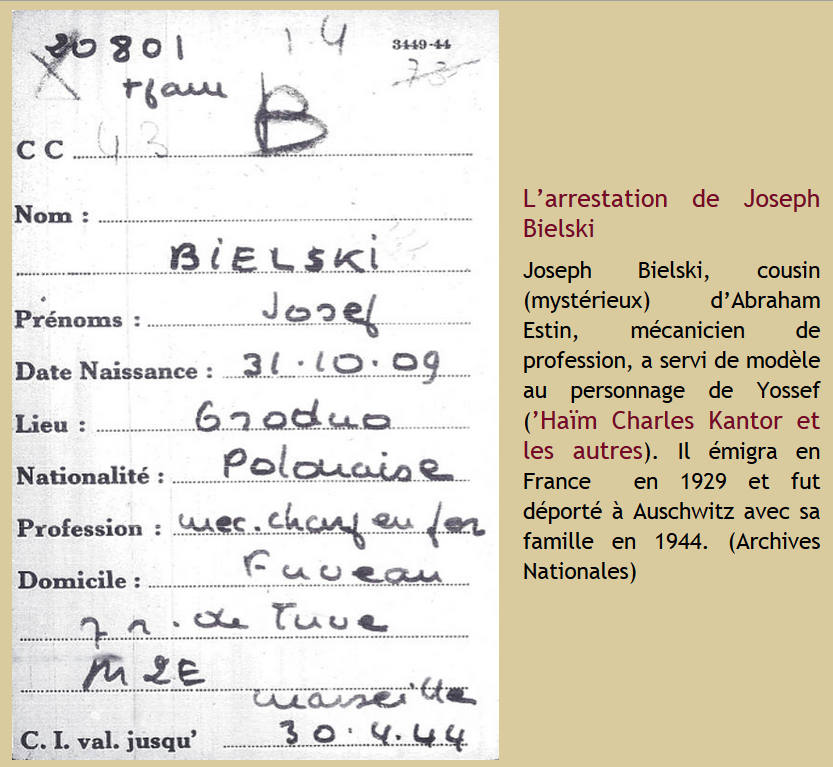 20801
14
3449-44
73
+ fam
B
CC 43
Nom :
BIELSKI
Prénoms : Josef
Date Naissance : 31.10.09
Lieu : Grodno
Nationalité : Polonaise
Profession : mec. chauf en fer
Domicile : Fuveau
7 r. de Tuve
M2E
Marseille
C. I. val. jusqu' 30.4.44
L'arrestation de Joseph
Bielski
Joseph Bielski, cousin
(mystérieux) d'Abraham
Estin, mécanicien de
profession, a servi de modèle
au personnage de Yossef
('Haïm Charles Kantor et
les autres). Il émigra en
France en 1929 et fut
déporté à Auschwitz avec sa
famille en 1944. (Archives
Nationales)